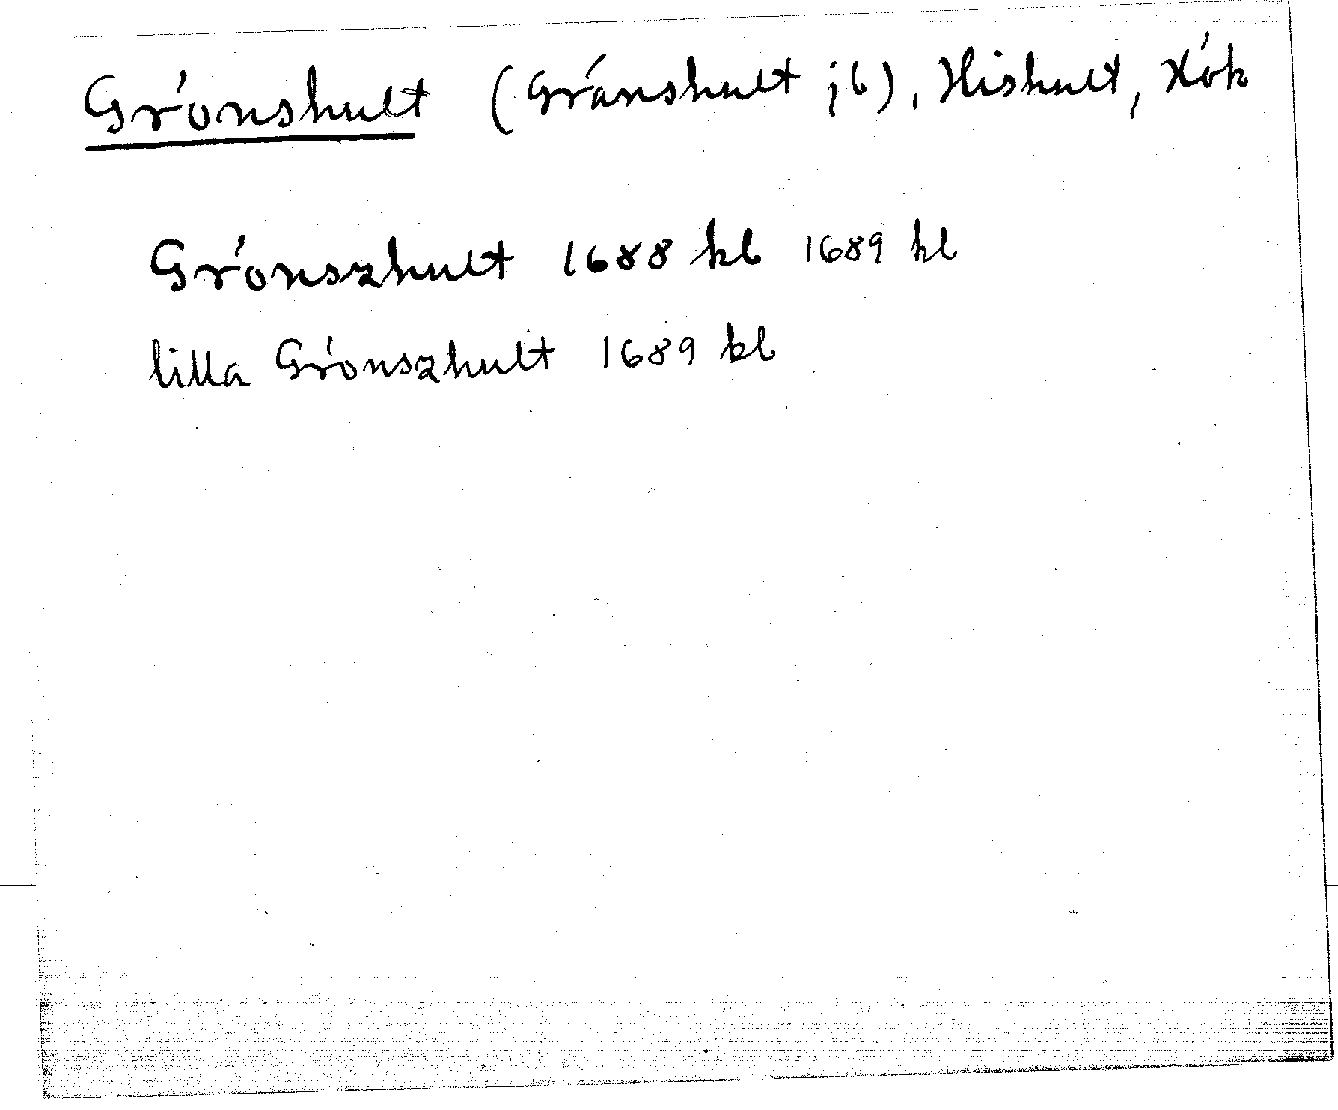 Grönshult (Gränshult jb), Hishult, Hök
Grönszhult 1688 kb 1689 kl
lilla Grönszhult 1689 kb